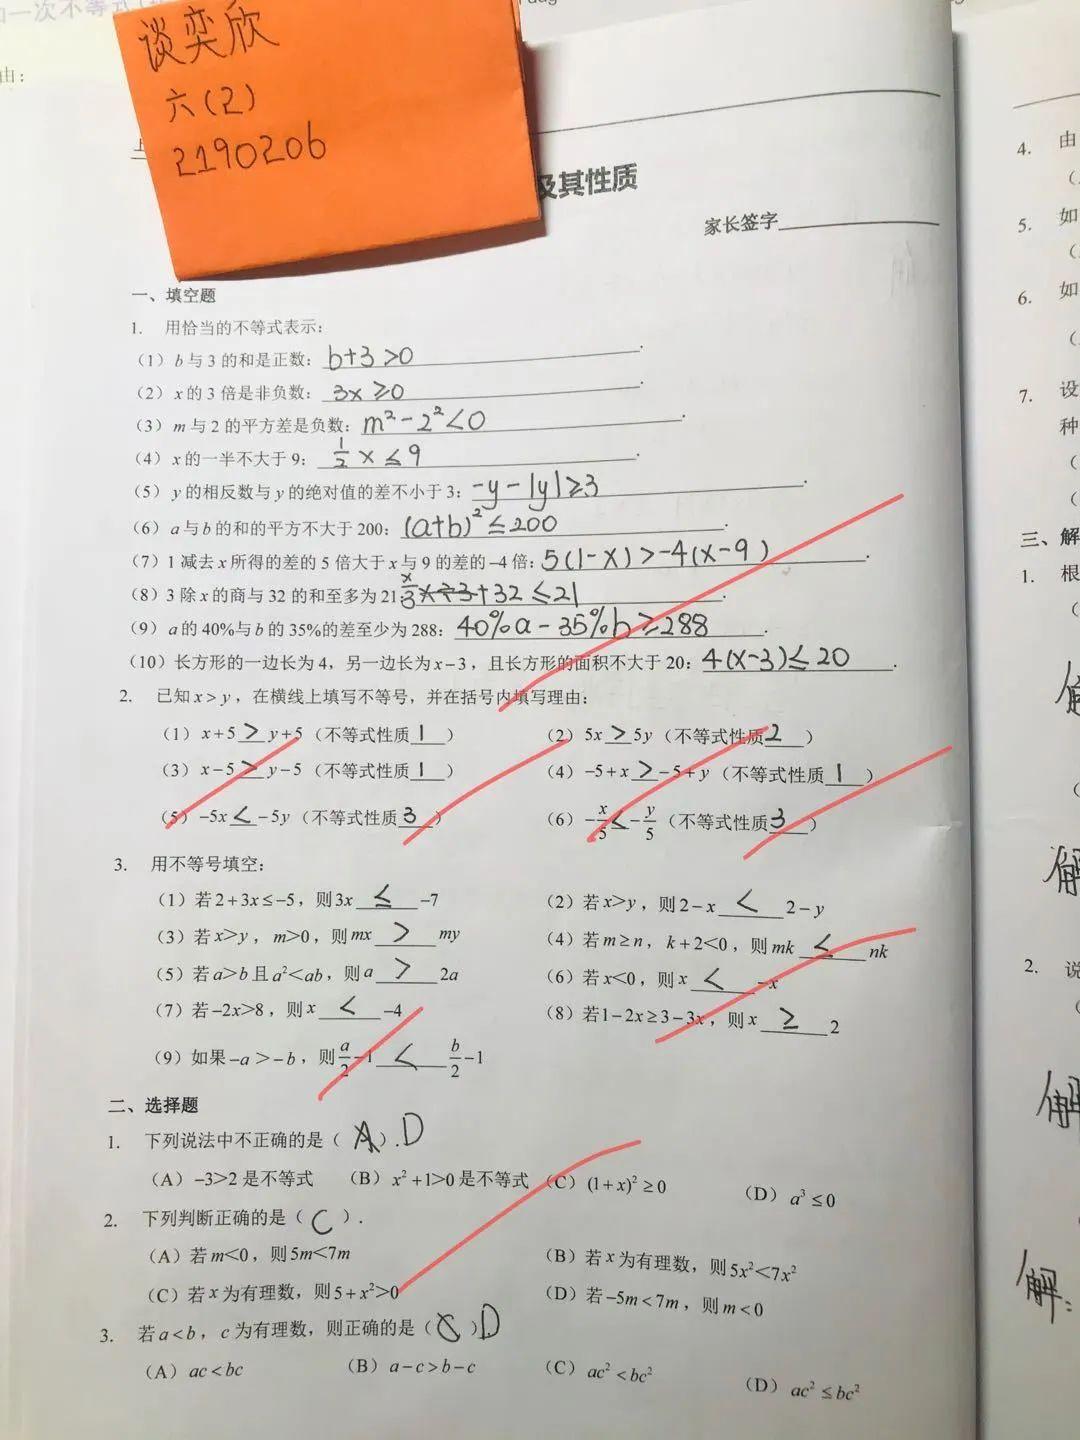 一次不等式
谈奕欣
六(2)
2190206
由:
及其性质
家长签字
一、填空题
1. 用恰当的不等式表示:
(1) b与3的和是正数: b+3>0.
(2) x的3倍是非负数: 3x≥0.
(3) m与2的平方差是负数: m²-2²<0.
(4) x的一半不大于9: 1/2 x≤9.
(5) y的相反数与y的绝对值的差不小于3: -y-|y|≥3.
(6) a与b的和的平方不大于200: (a+b)²≤200.
(7) 1减去x所得的差的5倍大于x与9的差的-4倍: 5(1-x)>-4(x-9).
(8) 3除x的商与32的和至多为21 x/3+32≤21
(9) a的40%与b的35%的差至少为288: 40%a-35%b≥288.
(10) 长方形的一边长为4,另一边长为x-3,且长方形的面积不大于20: 4(x-3)≤20.
2. 已知x>y,在横线上填写不等号,并在括号内填写理由:
(1) x+5 > y+5 (不等式性质1) (2) 5x > 5y (不等式性质2)
(3) x-5 > y-5 (不等式性质1) (4) -5+x > -5+y (不等式性质1)
(5) -5x < -5y (不等式性质3) (6) -x/5 < -y/5 (不等式性质3)
3. 用不等号填空:
(1) 若2+3x≤-5,则3x ≤ -7 (2) 若x>y,则2-x < 2-y
(3) 若x>y,m>0,则mx > my (4) 若m≥n,k+2<0,则mk ≤ nk
(5) 若a>b且a²<ab,则a > 2a (6) 若x<0,则x < -x
(7) 若-2x>8,则x < -4 (8) 若1-2x≥3-3x,则x ≥ 2
(9) 如果-a>-b,则a/2-1 < b/2-1
二、选择题
1. 下列说法中不正确的是( A ).D
(A) -3>2是不等式 (B) x²+1>0是不等式 (C) (1+x)²≥0 (D) a³≤0
2. 下列判断正确的是( C ).
(A) 若m<0,则5m<7m (B) 若x为有理数,则5x²<7x²
(C) 若x为有理数,则5+x²>0 (D) 若-5m<7m,则m<0
3. 若a<b,c为有理数,则正确的是( C ).D
(A) ac<bc (B) a-c>b-c (C) ac²<bc² (D) ac²≤bc²
4. 由
5. 如
6. 如
7. 设
种
三、解
1. 根
解
解
2. 说
解
解: